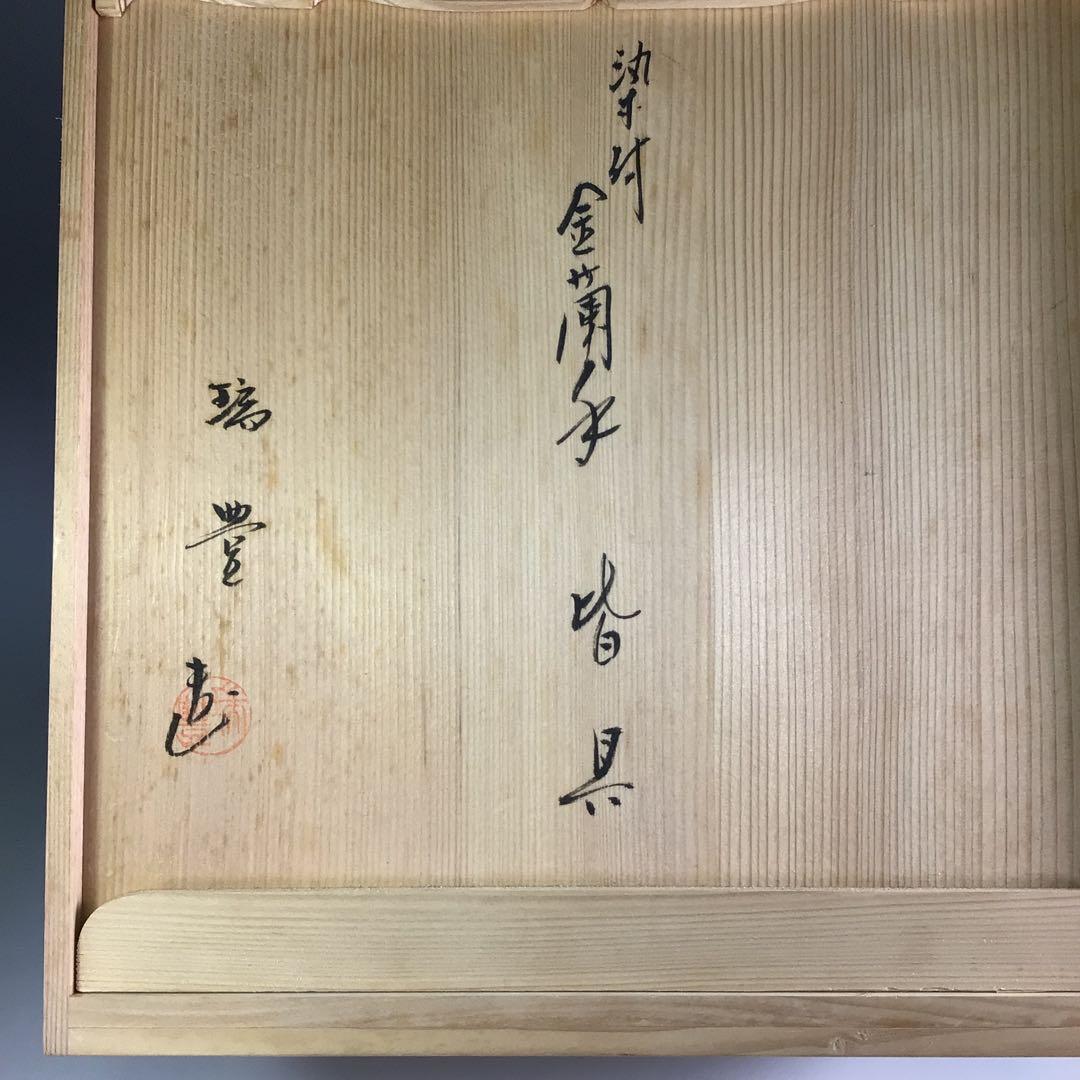 染付
金蘭手 皆具
瑞豊 造